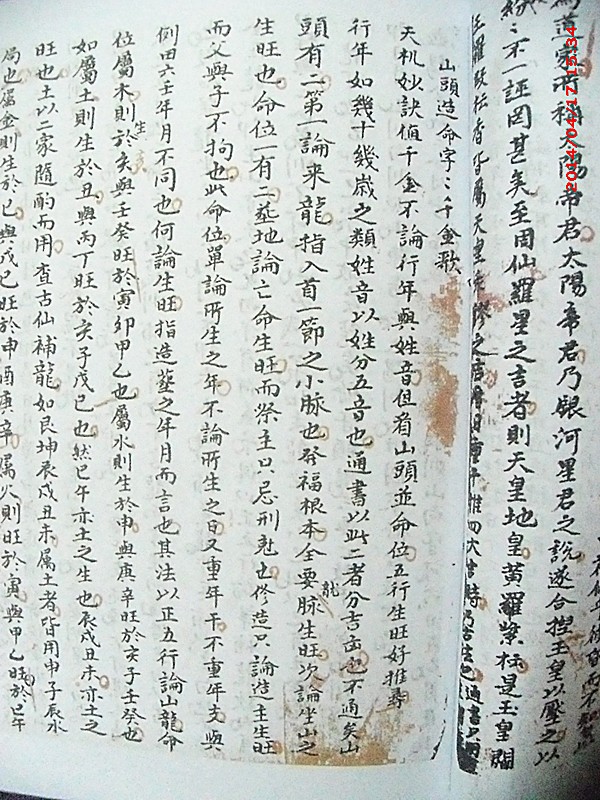 為道家所稱太陽帝君太陽帝君乃銀河星君之說遂合捏玉皇以壓之以
紛〻不一誣罔甚矣至周仙羅星之吉者則天皇地皇黃羅紫枟是玉皇關
山頭造命字〻千金歌
天机妙訣值千金不論行年與姓音但看山頭並命位五行生旺好推尋
行年如幾十幾歲之類姓音以姓分五音也通書以此二者分吉凶也不通矣山
頭有二第一論来龍指入首一節之小脉也發福根本全要龍脉生旺次論坐山之
生旺也命位一有二塟地論亡命生旺而祭主只忌刑尅也修造只論造主生旺
而父與子不拘也此命位單論所生之年不論所生之日又重年干不重年支與
例田六壬年月不同也何論生旺指造塟之年月而言也其法以正五行論山龍命
位屬木則生於亥與壬癸旺於寅卯甲乙也屬水則生於申與庚辛旺於亥子壬癸也
如屬土則生於丑與丙丁旺於亥子戊己也然巳午亦土之生也辰戌丑未亦土之
旺也土以二家隨酌而用查古仙補龍如艮坤辰戌丑未属土者皆用申子辰水
局也屬金則生於巳與戊己旺於申酉庚辛属火則旺於寅與甲乙旺於巳午
2044/04/17 15:34